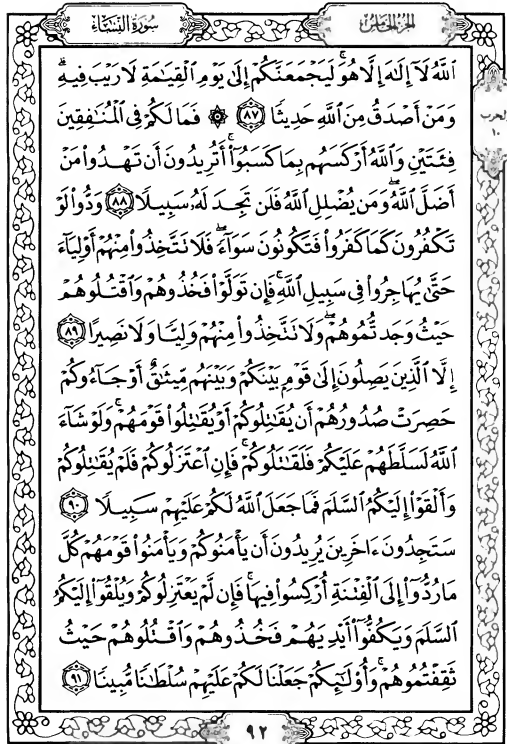 سُورَةُ النِّسَاءِ الجُزْءُ الخَامِسُ
اللَّهُ لَآ إِلَٰهَ إِلَّا هُوَ ۚ لَيَجْمَعَنَّكُمْ إِلَىٰ يَوْمِ الْقِيَٰمَةِ لَا رَيْبَ فِيهِ ۗ
وَمَنْ أَصْدَقُ مِنَ اللَّهِ حَدِيثًا ٨٧ ۞ فَمَا لَكُمْ فِي الْمُنَٰفِقِينَ
فِئَتَيْنِ وَاللَّهُ أَرْكَسَهُم بِمَا كَسَبُوٓا۟ ۚ أَتُرِيدُونَ أَن تَهْدُوا۟ مَنْ
أَضَلَّ اللَّهُ ۖ وَمَن يُضْلِلِ اللَّهُ فَلَن تَجِدَ لَهُۥ سَبِيلًا ٨٨ وَدُّوا۟ لَوْ
تَكْفُرُونَ كَمَا كَفَرُوا۟ فَتَكُونُونَ سَوَآءً ۖ فَلَا تَتَّخِذُوا۟ مِنْهُمْ أَوْلِيَآءَ
حَتَّىٰ يُهَاجِرُوا۟ فِي سَبِيلِ اللَّهِ ۚ فَإِن تَوَلَّوْا۟ فَخُذُوهُمْ وَاقْتُلُوهُمْ
حَيْثُ وَجَدتُّمُوهُمْ ۖ وَلَا تَتَّخِذُوا۟ مِنْهُمْ وَلِيًّا وَلَا نَصِيرًا ٨٩
إِلَّا الَّذِينَ يَصِلُونَ إِلَىٰ قَوْمٍۭ بَيْنَكُمْ وَبَيْنَهُم مِّيثَٰقٌ أَوْ جَآءُوكُمْ
حَصِرَتْ صُدُورُهُمْ أَن يُقَٰتِلُوكُمْ أَوْ يُقَٰتِلُوا۟ قَوْمَهُمْ ۚ وَلَوْ شَآءَ
اللَّهُ لَسَلَّطَهُمْ عَلَيْكُمْ فَلَقَٰتَلُوكُمْ ۚ فَإِنِ اعْتَزَلُوكُمْ فَلَمْ يُقَٰتِلُوكُمْ
وَأَلْقَوْا۟ إِلَيْكُمُ السَّلَمَ فَمَا جَعَلَ اللَّهُ لَكُمْ عَلَيْهِمْ سَبِيلًا ٩٠
سَتَجِدُونَ ءَاخَرِينَ يُرِيدُونَ أَن يَأْمَنُوكُمْ وَيَأْمَنُوا۟ قَوْمَهُمْ كُلَّ
مَا رُدُّوٓا۟ إِلَى الْفِتْنَةِ أُرْكِسُوا۟ فِيهَا ۚ فَإِن لَّمْ يَعْتَزِلُوكُمْ وَيُلْقُوٓا۟ إِلَيْكُمُ
السَّلَمَ وَيَكُفُّوٓا۟ أَيْدِيَهُمْ فَخُذُوهُمْ وَاقْتُلُوهُمْ حَيْثُ
ثَقِفْتُمُوهُمْ ۚ وَأُو۟لَٰٓئِكُمْ جَعَلْنَا لَكُمْ عَلَيْهِمْ سُلْطَٰنًا مُّبِينًا ٩١
الحزب
١٠
٩٢